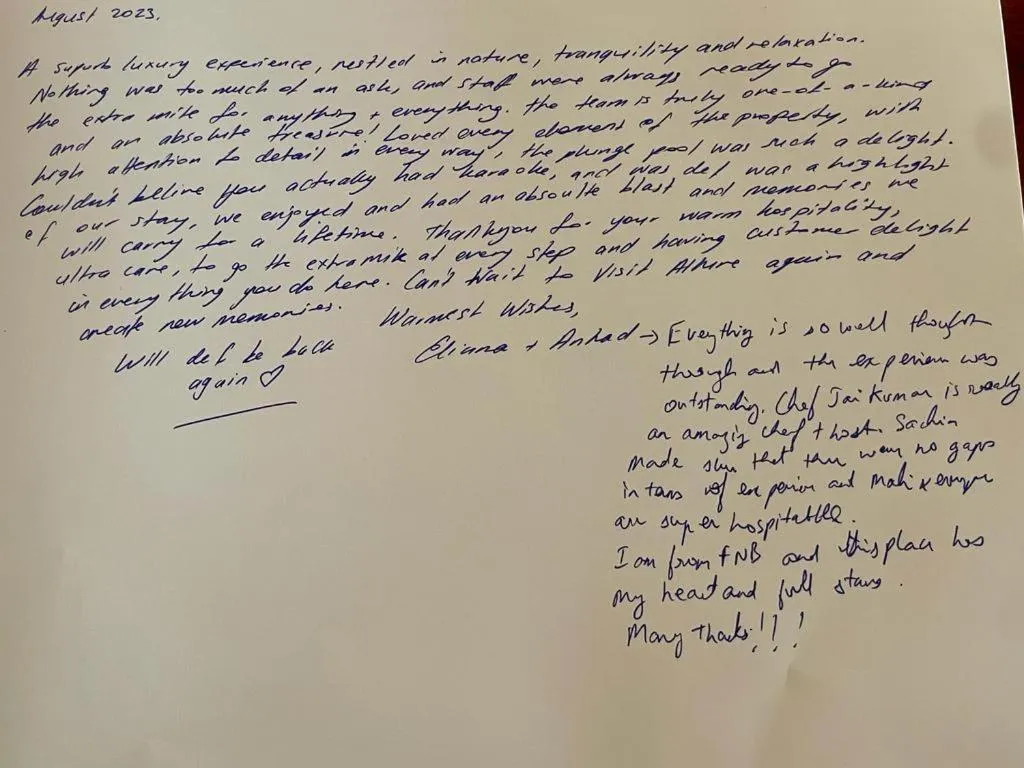 August 2023.
A superb luxury experience, nestled in nature, tranquility and relaxation.
Nothing was too much of an ask, and staff were always ready to go
the extra mile for anything + everything. The team is truly one-of-a-kind
and an absolute treasure! Loved every element of the property, with
high attention to detail in every way, the plunge pool was such a delight.
Couldn't believe you actually had karaoke, and was def was a highlight
of our stay, we enjoyed and had an absoulte blast and memories we
will carry for a lifetime. Thankyou for your warm hospitality,
ultra care, to go the extra mile at every step and having customer delight
in everything you do here. Can't wait to visit again and
create new memories.
Warmest Wishes,
Eliana + →
Will def be back
again ♡
Everything is so well thought
through and the experience was
outstanding. Chef Jai Kumar is really
an amazing chef + host. Sachin
made sure that there were no gaps
in of experience and
are super hospitable.
I am from FNB and this place has
my heart and full stars.
Many thanks!!!